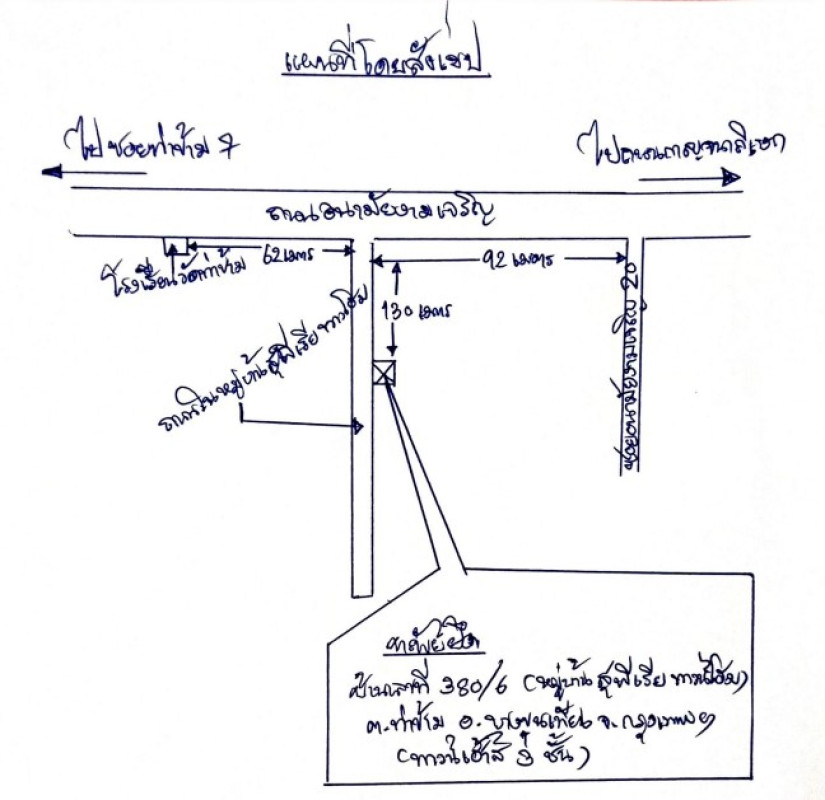 แผนที่โดยสังเขป
ไปซอยท่าข้าม 7
ไปถนนกาญจนาภิเษก
ถนนอนามัยงามเจริญ
62 เมตร
92 เมตร
โรงเรียนวัดท่าข้าม
130 เมตร
ซอยอนามัยงามเจริญ 20
ถนนในหมู่บ้านสุพีเรียทาวน์โฮม
ทรัพย์ยึด
บ้านเลขที่ 380/6 (หมู่บ้านสุพีเรียทาวน์โฮม)
ต.ท่าข้าม อ.บางขุนเทียน จ.กรุงเทพฯ
(ทาวน์เฮ้าส์ 3 ชั้น)